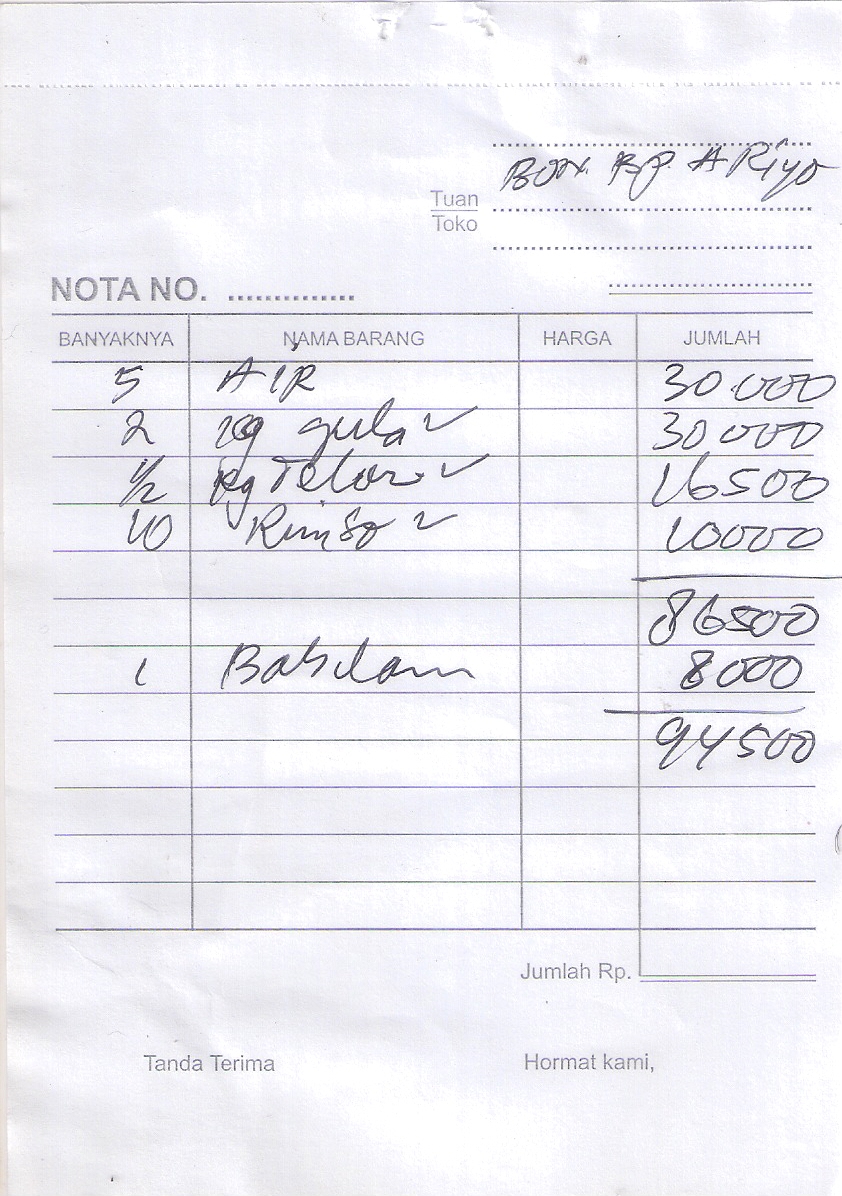 Bon Bp ARiyo
Tuan
Toko
NOTA NO. ..............
BANYAKNYA NAMA BARANG HARGA JUMLAH
5 AIR 30.000
2 kg gula 30000
1/2 kg Telor 16500
10 Rinso 10000
86500
1 8000
94500
Jumlah Rp.
Tanda Terima Hormat kami,